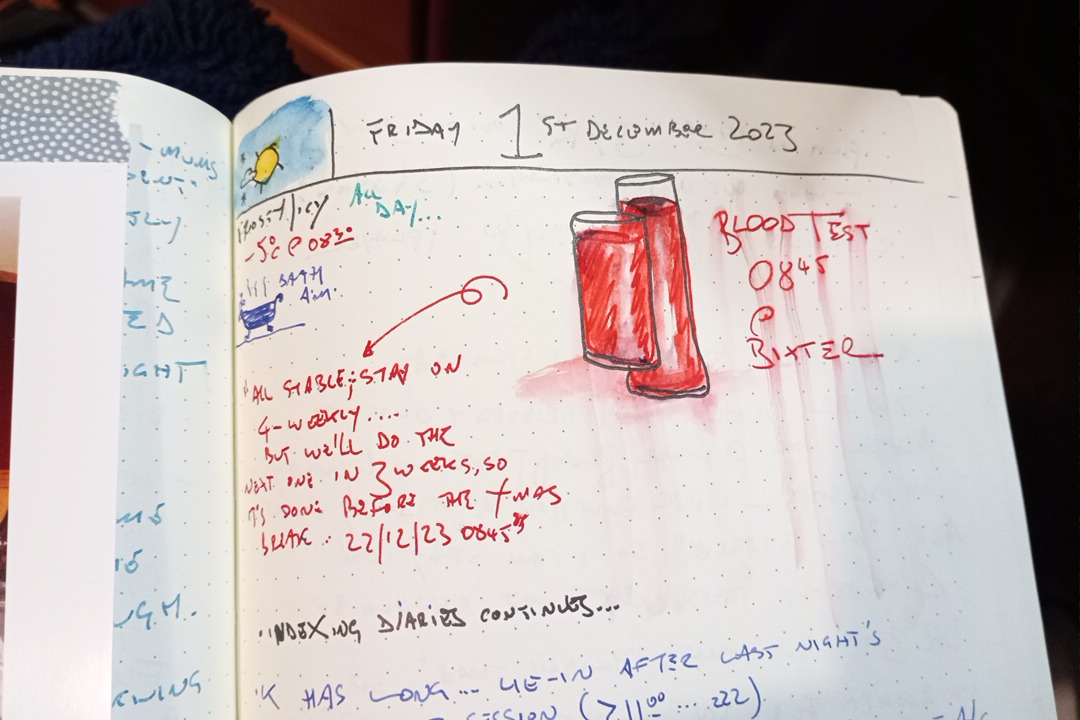 FRIDAY 1ST DECEMBER 2023
FROSTY/ICY ALL DAY...
-5°C @ 0830
BATH A.M.
BLOOD TEST
0845
@
BIXTER
ALL STABLE; STAY ON
4-WEEKLY....
BUT WE'LL DO THE
NEXT ONE IN 3 WEEKS, SO
IT'S DONE BEFORE THE XMAS
BREAK.. 22/12/23 0845
INDEXING DIARIES CONTINUES...
K HAS LONG... LIE-IN AFTER LAST NIGHT'S
SESSION (>1100 ... ZZZ).
- MUMS
IGHT
UGH.
EWING